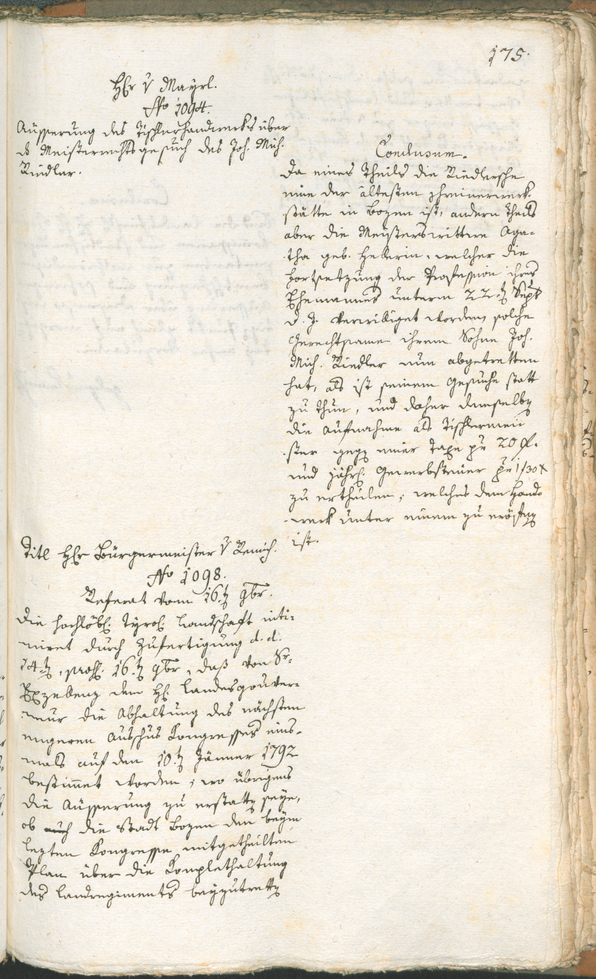 175.
Hr v Mayrl.
No 1094.
Äusserung des Tischlerhandwerks über
d Meisterrechtsgesuch des Joh. Mich.
Riedler.
Conclusum.
Da eines Theils die Riedlersche
eine der ältesten
stätte in Bozen ist, andern Theils
aber die Meisterswittwe Aga-
tha geb. welcher die
Fortsetzung der Profession ihres
Ehemannes unterm 22ten Sept.
d. J. verwilliget worden, solche
Gerechtsame ihrem Sohne Joh.
Mich. Riedler nun abgetretten
hat, als ist seinem Gesuche statt
zu thun, und daher demselben
die Aufnahme als Tischlermei
ster gegen einer Taxe pr 20 f.
und jährl. Gewerbsteuer pr 1/30 x
zu ertheilen, welches dem Hand-
werk unter einem zu eröfnen
ist.
Titl Hr Bürgermeister v Remich.
No 1098.
Referat vom 16ten 9br.
Die hochlöbl. Tyrol. Landschaft inti-
miret durch Zufertigung d. d.
14ten, 16ten 9br, daß von Sr
Exzellenz dem H Landesgouver-
neur die Abhaltung des nächsten
engeren Ausschus Kongresses eins-
mals auf den 10ten Jänner 1792
bestimmet worden, wo übrigens
die Äusserung zu erstatten seye,
ob auch die Stadt Bozen den beym
lezten Kongresse mitgetheilten
Plan über die Komplethaltung
des Landregiments beyzutretten